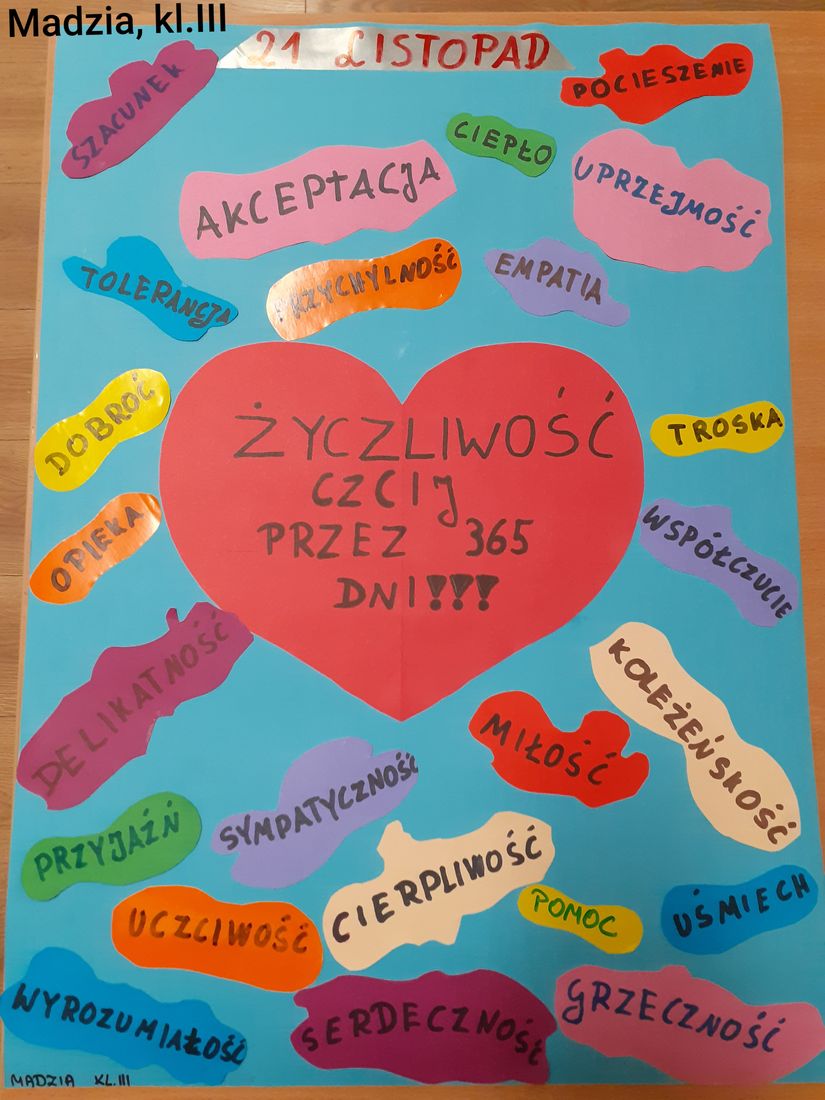 Madzia, kl.III
21 LISTOPAD
SZACUNEK
POCIESZENIE
CIEPŁO
AKCEPTACJA
UPRZEJMOŚĆ
TOLERANCJA
PRZYCHYLNOŚĆ
EMPATIA
DOBROĆ
ŻYCZLIWOŚĆ
CZCIJ
PRZEZ 365
DNI!!!
TROSKA
OPIEKA
WSPÓŁCZUCIE
DELIKATNOŚĆ
KOLEŻEŃSKOŚĆ
MIŁOŚĆ
SYMPATYCZNOŚĆ
PRZYJAŹŃ
CIERPLIWOŚĆ
UCZCIWOŚĆ
POMOC
UŚMIECH
WYROZUMIAŁOŚĆ
SERDECZNOŚĆ
GRZECZNOŚĆ
MADZIA KL.III